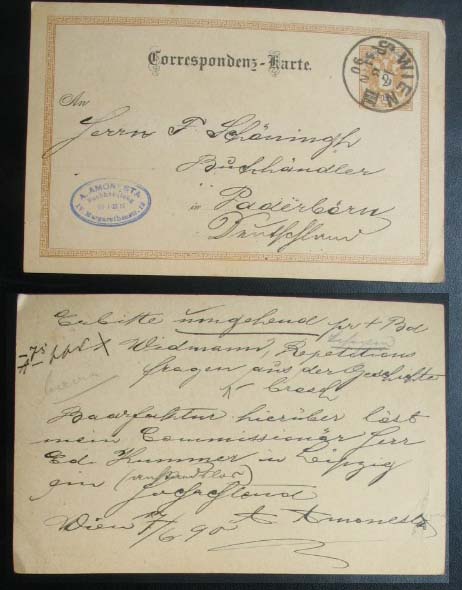 Correspondenz-Karte.
WIEN
90
An
Herrn F Schöningh
Buchhändler
in Paderborn
Deutschland
A. AMONESTA
Buchhandlung
WIEN
IV Margarethenstr.
Erbitte umgehend pr + Bd
Widmann, Repetitions
fragen aus der Geschichte
brosch
Baarfaktur hierüber löst
mein Commissionär Herr
Ed. Hummer in Leipzig
ein (anstandslos)
Hochachtend
Wien 17/6 90 A Amonesta